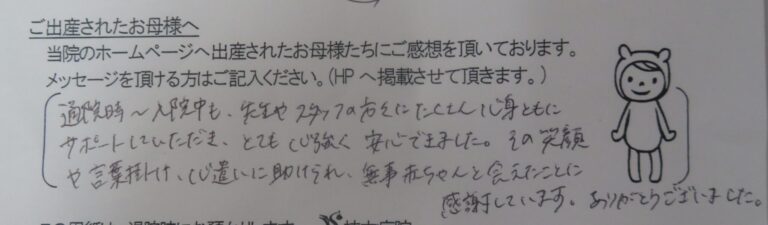 ご出産されたお母様へ
当院のホームページへ出産されたお母様たちにご感想を頂いております。
メッセージを頂ける方はご記入ください。(HPへ掲載させて頂きます。)
通院時〜入院中も、先生やスタッフの方々にたくさん心身ともに
サポートしていただき、とても心強く安心できました。その笑顔
や言葉掛け、心遣いに助けられ、無事赤ちゃんと会えたことに
感謝しています。ありがとうございました。